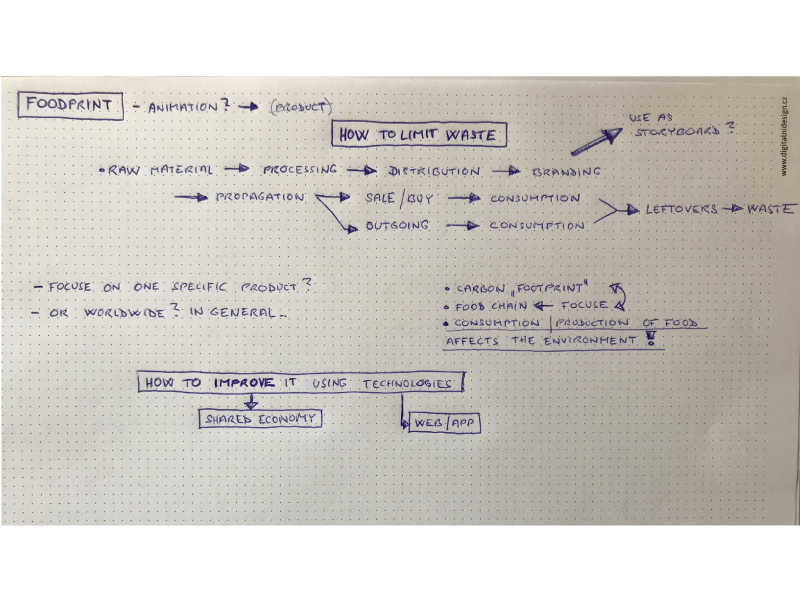 FOODPRINT - ANIMATION? → (PRODUCT)
HOW TO LIMIT WASTE
USE AS
STORYBOARD?
• RAW MATERIAL → PROCESSING → DISTRIBUTION → BRANDING
→ PROPAGATION → SALE/BUY → CONSUMPTION
→ LEFTOVERS → WASTE
OUTGOING → CONSUMPTION
- FOCUSE ON ONE SPECIFIC PRODUCT?
- OR WORLDWIDE? IN GENERAL..
• CARBON „FOOTPRINT"
• FOOD CHAIN ← FOCUSE
• CONSUMPTION | PRODUCTION OF FOOD
AFFECTS THE ENVIRONMENT!
HOW TO IMPROVE IT USING TECHNOLOGIES
SHARED ECONOMY
WEB/APP
www.digitalnidesign.cz